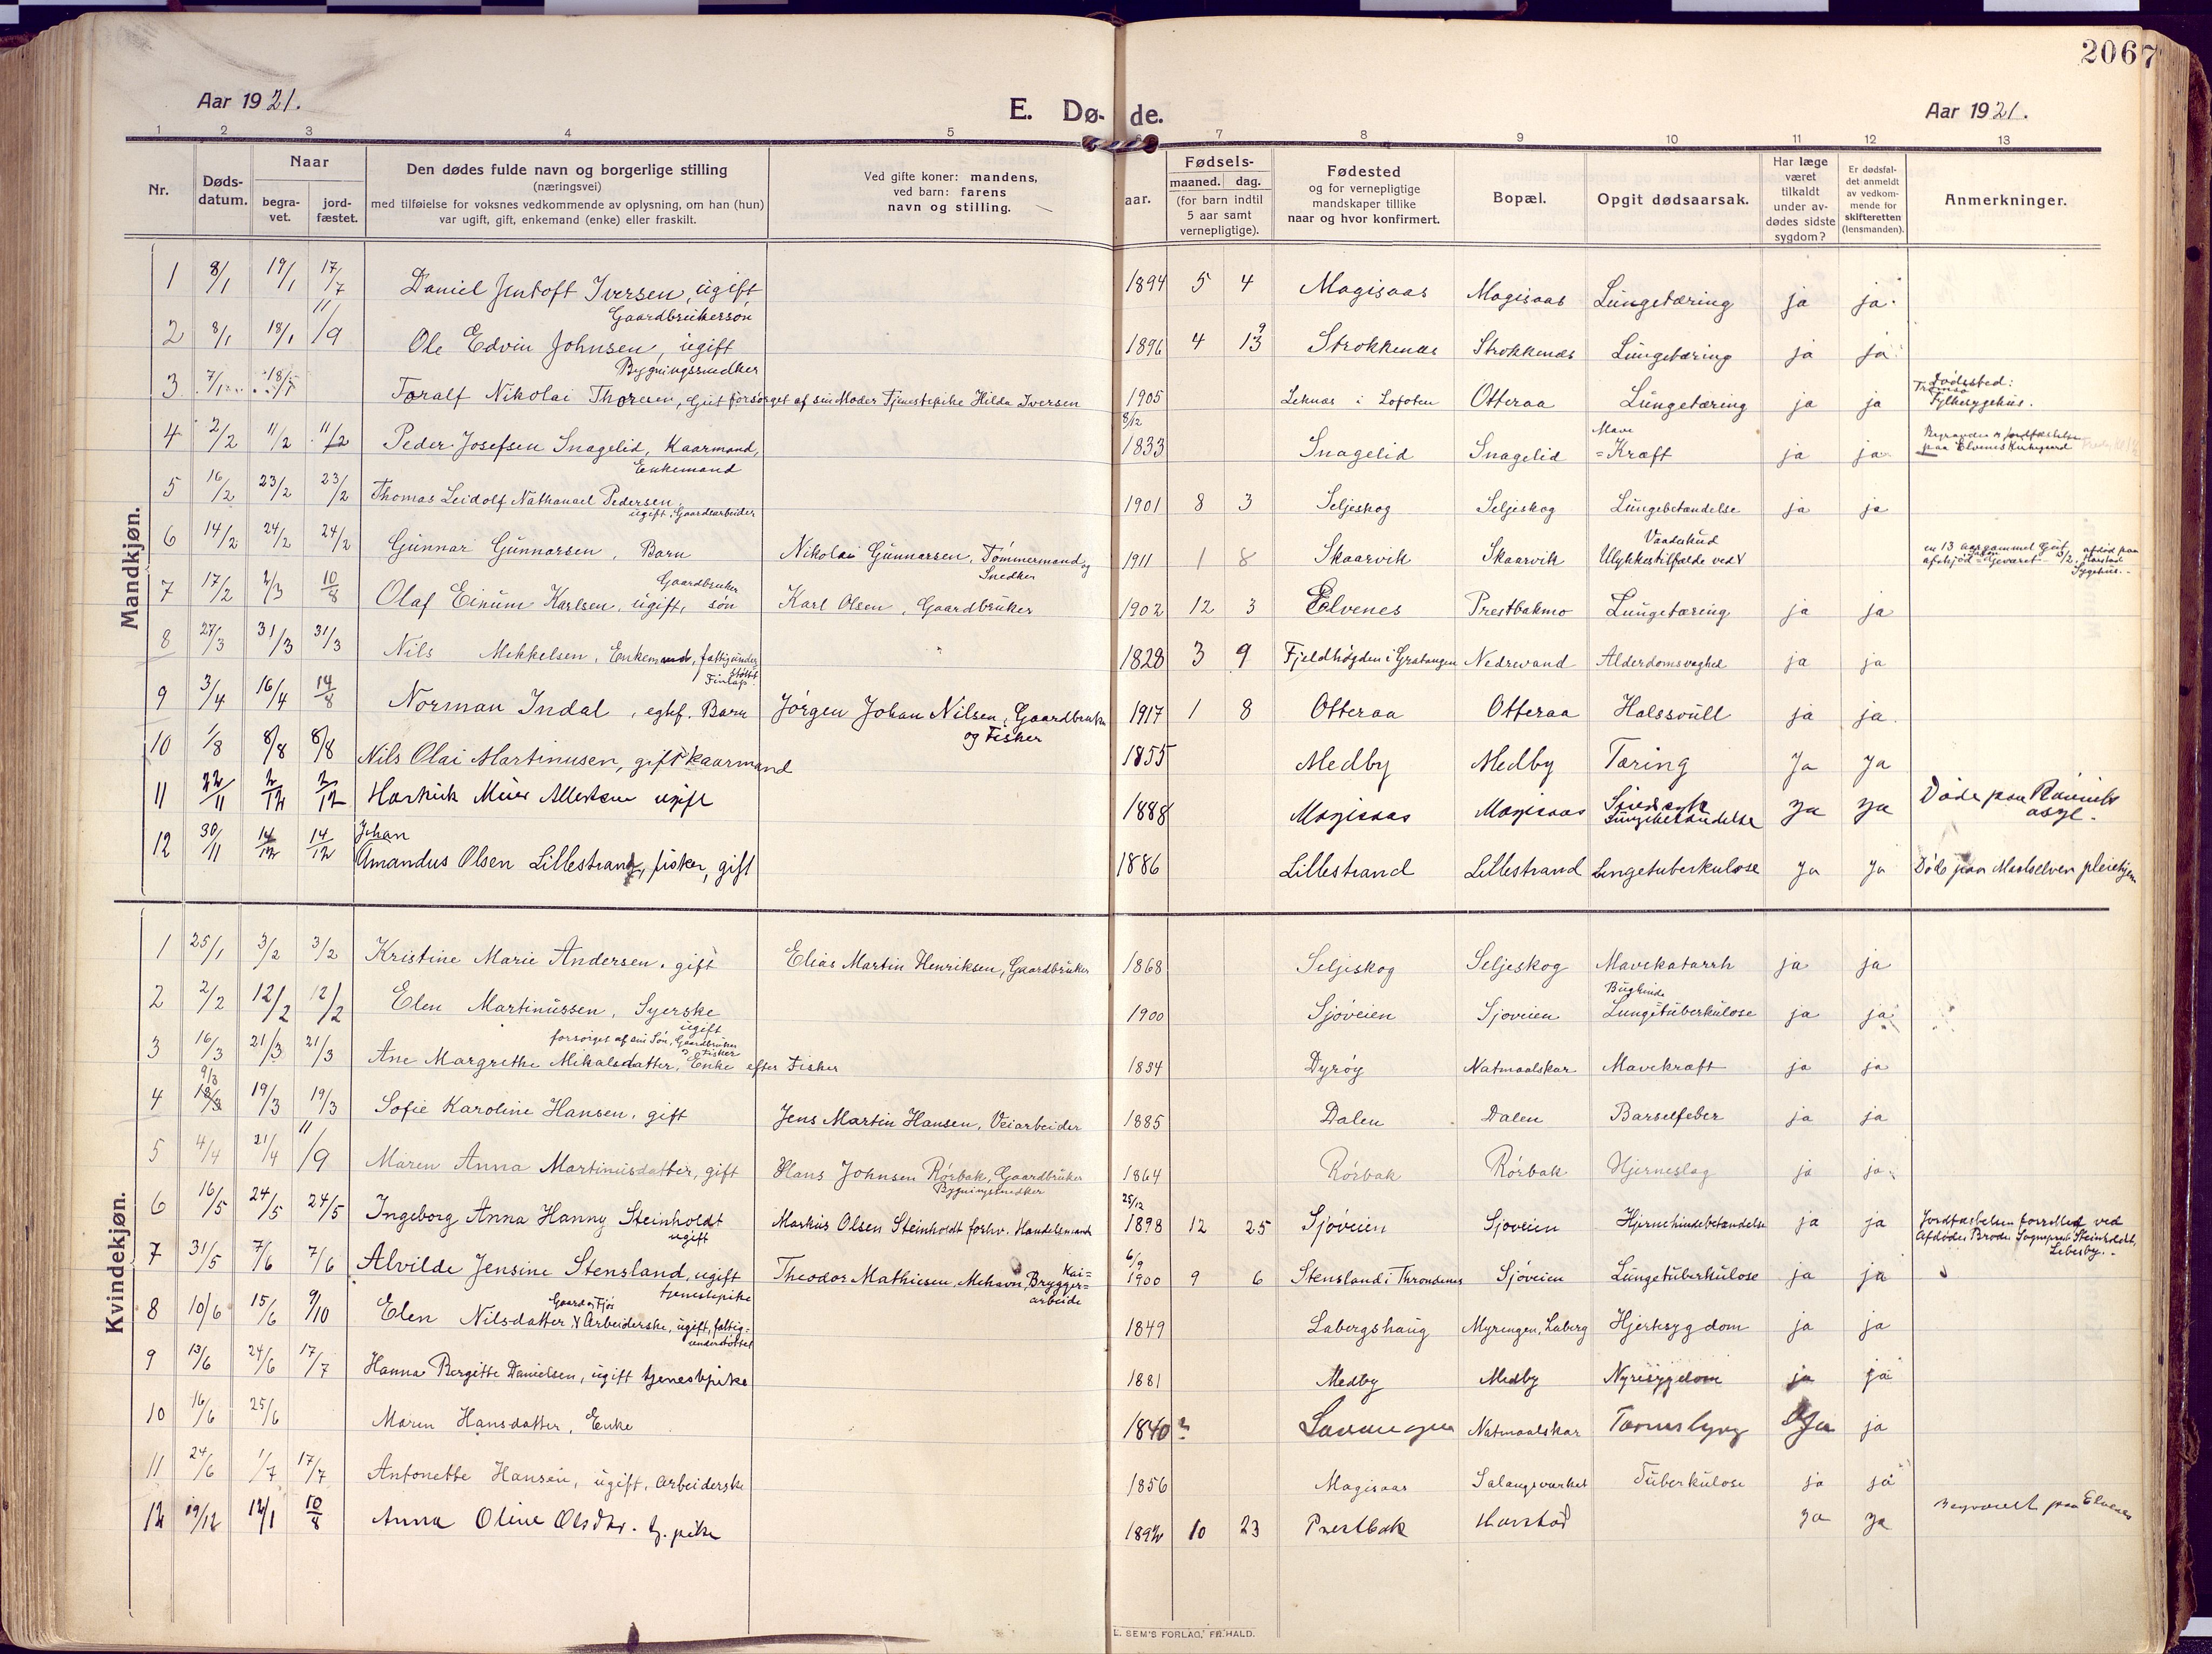 2067
Aar 1921.
E. Dø- de.
Aar 1921.
1 2 3 4 5 6 7 8 9 10 11 12 13
Nr.
Døds-datum.
Naar
begra-vet.
jord-fæstet.
Den dødes fulde navn og borgerlige stilling
(næringsvei)
med tilføielse for voksnes vedkommende av oplysning, om han (hun)
var ugift, gift, enkemand (enke) eller fraskilt.
Ved gifte koner: mandens,
ved barn: farens
navn og stilling.
aar.
Fødsels-
maaned. dag.
(for barn indtil
5 aar samt
vernepligtige).
Fødested
og for vernepligtige
mandskaper tillike
naar og hvor konfirmert.
Bopæl.
Opgit dødsaarsak.
Har læge
været
tilkaldt
under av-
dødes sidste
sygdom?
Er dødsfal-
det anmeldt
av vedkom-
mende for
skifteretten
(lensmanden).
Anmerkninger.
Mandkjøn.
1 8/1 19/1 17/7 Daniel Jentoft Iversen, ugift, Gaardbrukersøn 1894 5 4 Magisaas Magisaas Lungetæring ja ja.
2 8/1 18/1 11/9 Ole Edvin Johnsen, ugift Bygningssnedker 1896 4 13 9 Strokkenæs Strokkenæs Lungetæring ja ja
3 7/1 18/7 Toralf Nikolai Thoresen, Gut forsørget af sin Moder Tjenestepike Hilda Iversen 1905 Leknæs i Lofoten Otteraa Lungetæring ja ja Dødssted: Tromsø Fylkesygehus.
4 2/2 11/2 11/2 Peder Josefsen Snagelid, Kaarmand, Enkemand 8/12 1833 Snagelid Snagelid Mave = Kræft ja ja Begravelse og Jordfæstelse paa Elvenes Kirkegaard
5 16/2 23/2 23/2 Thomas Leidolf Nathanael Pedersen, ugift, Gaardsarbeider 1901 8 3 Seljeskog Seljeskog Lungebetændelse ja ja
6 14/2 24/2 24/2 Gunnar Gunnarsen, Barn Nikolai Gunnarsen, Tømmermand og Snedker 1911 1 8 Skaarvik Skaarvik Ulykkestilfælde ved Vaadeskud en 13 aar gammel Gut afskjød Geværet afdød paa Harstad Sygehus.
7 17/2 2/3 10/8 Olaf Einum Karlsen, ugift, Gaardbruker søn Karl Olsen, Gaardbruker 1902 12 3 Elvenes Prestbakmo Lungetæring ja ja
8 27/3 31/3 31/3 Nils Mikkelsen, Enkemand, fattigunderstøttet Finlap. 1828 3 9 Fjeldhøgden i Gratangen Nedrevand Alderdomssvaghed ja ja
9 3/4 16/4 14/8 Norman Indal, egtef. Barn Jørgen Johan Nilsen, Gaardbruker og Fisker 1917 1 8 Otteraa Otteraa Halssvull ja ja.
10 1/8 8/8 8/8 Nils Olai Martinusen, gift kaarmand 1855 Medby Medby Tæring Ja Ja
11 22/11 2/12 2/12 Hartvik Meier Albertsen ugift 1888 Magisaas Magisaas Sindssyk Lungebetændelse Ja Ja Døde paa Rønvik asyl.
12 30/11 14/12 14/12 Johan Amandus Olsen Lillestrand, fisker, gift 1886 Lillestrand Lillestrand Lungetuberkulose Ja Ja Døde paa Maalselven pleiehjem
Kvindekjøn.
1 25/1 3/2 3/2 Kristine Marie Andersen, gift Elias Martin Henriksen, Gaardbruker 1868 Seljeskog Seljeskog Mavekatarrh ja ja
2 2/2 12/2 12/2 Elen Martinussen, Syerske ugift 1900 Sjøveien Sjøveien Bughinde Lungetuberkulose ja ja
3 16/3 21/3 21/3 Ane Margrethe Mikalsdatter, Enke efter Fisker forsørget af sin Søn, Gaardbruker o. Fisker 1834 Dyrøy Natmaalskar Mavekræft ja ja
4 9/3 19/3 19/3 Sofie Karoline Hansen, gift Jens Martin Hansen, Veiarbeider 1885 Dalen Dalen Barselfeber ja ja
5 4/4 21/4 11/9 Maren Anna Martinusdatter, gift Hans Johnsen Rørbak, Gaardbruker Bygningssnedker 1864 Rørbak Rørbak Hjerneslag ja ja
6 16/5 24/5 24/5 Ingeborg Anna Hanny Steinholdt ugift Markus Olsen Steinholdt forhv. Handelsmand 25/12 1898 12 25 Sjøveien Sjøveien Hjernehindebetændelse ja ja Jordfæstelsen forrettet ved Afdødes Broder Sogneprest Steinholdt, Lebesby.
7 31/5 7/6 7/6 Alvilde Jensine Stensland, ugift tjenestepike Theodor Mathiesen, Mehavn, Kai= Brygger= arbeide 6/9 1900 9 6 Stensland i Throndenes Sjøveien Lungetuberkulose ja ja
8 10/6 15/6 9/10 Elen Nilsdatter, Gaard og Fjøs Arbeiderske, ugift, fattig= understøttet 1849 Labergshaug Myrengen, Laberg Hjertesygdom ja ja
9 13/6 24/6 17/7 Hanna Bergitte Danielsen, ugift tjenestpike 1881 Medby Medby Nyresygdom ja ja
10 16/6 25/6 Maren Hansdatter, Enke 1840 ? Natmaalskar Ja ja
11 24/6 1/7 17/7 Antonette Hansen, ugift, arbeiderske 1856 Magisaas Salangsverket Tuberkulose ja ja
12 19/12 12/1 10/8 Anna Oline Olsdtr. tj. pike 1892 10 23 Prestbak Harstad Ja Ja Begravet paa Elvenes
L. SEM'S FORLAG, FR.HALD.